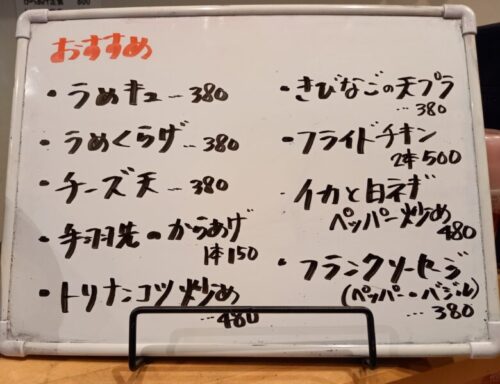 おすすめ
・うめキュー…380
・うめくらげ…380
・チーズ天…380
・手羽先のからあげ
1本150
・トリナンコツ炒め
…480
・きびなごの天プラ
…380
・フライドチキン
2本500
・イカと白ネギ
ペッパー炒め
480
・フランクソーセージ
(ペッパー・バジル)
…380